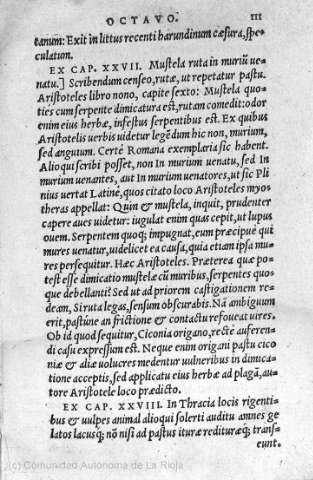 OCTAVO. III
tanum: Exit in littus recenti harundinum cæsura, spe-
culatum.
EX CAP. XXVII. Mustela ruta in muriũ ue-
natu.] Scribendum censeo, rutæ, ut repetatur pastu.
Aristoteles libro nono, capite sexto: Mustela quo-
ties cum serpente dimicatura est, rutam comedit: odor
enim eius herbæ, infestus serpentibus est. Ex quibus
Aristotelis uerbis uidetur legẽdum hic non, murium,
sed anguium. Certè Romana exemplaria sic habent.
Alioqui scribi posset, non In murium uenatu, sed In
murium uenantes, aut In murium uenatores, ut sic Pli
nius uertat Latinè, quos citato loco Aristoteles myo
theras appellat: Quin & mustela, inquit, prudenter
capere aues uidetur: iugulat enim quas cepit, ut lupus
ouem. Serpentem quoq; impugnat, eum præcipuè qui
mures uenatur, uidelicet ea causa, quia etiam ipsa mu-
res persequitur. Hæc Aristoteles. Præterea quæ po-
test esse dimicatio mustelæ cũ muribus, serpentes quo
que debellanti? Sed ut ad priorem castigationem re-
deam, Si ruta legas, sensum obscurabis. Nã ambiguum
erit, pastúne an frictione & contactu refoueat uires.
Ob id quod sequitur, Ciconia origano, rectè auferen-
di casu expressum est. Neque enim origani pastu cico
niæ & aliæ uolucres medentur uulneribus in dimica-
tione acceptis, sed applicatu eius herbæ ad plagã, au-
tore Aristotele loco prædicto.
EX CAP. XXVIII. In Thracia locis rigenti-
bus & uulpes animal alioqui solerti auditu amnes ge
latos lacusq; nõ nisi ad pastus ituræ redituræq; trans-
eunt.
(c) Comunidad Autónoma de La Rioja